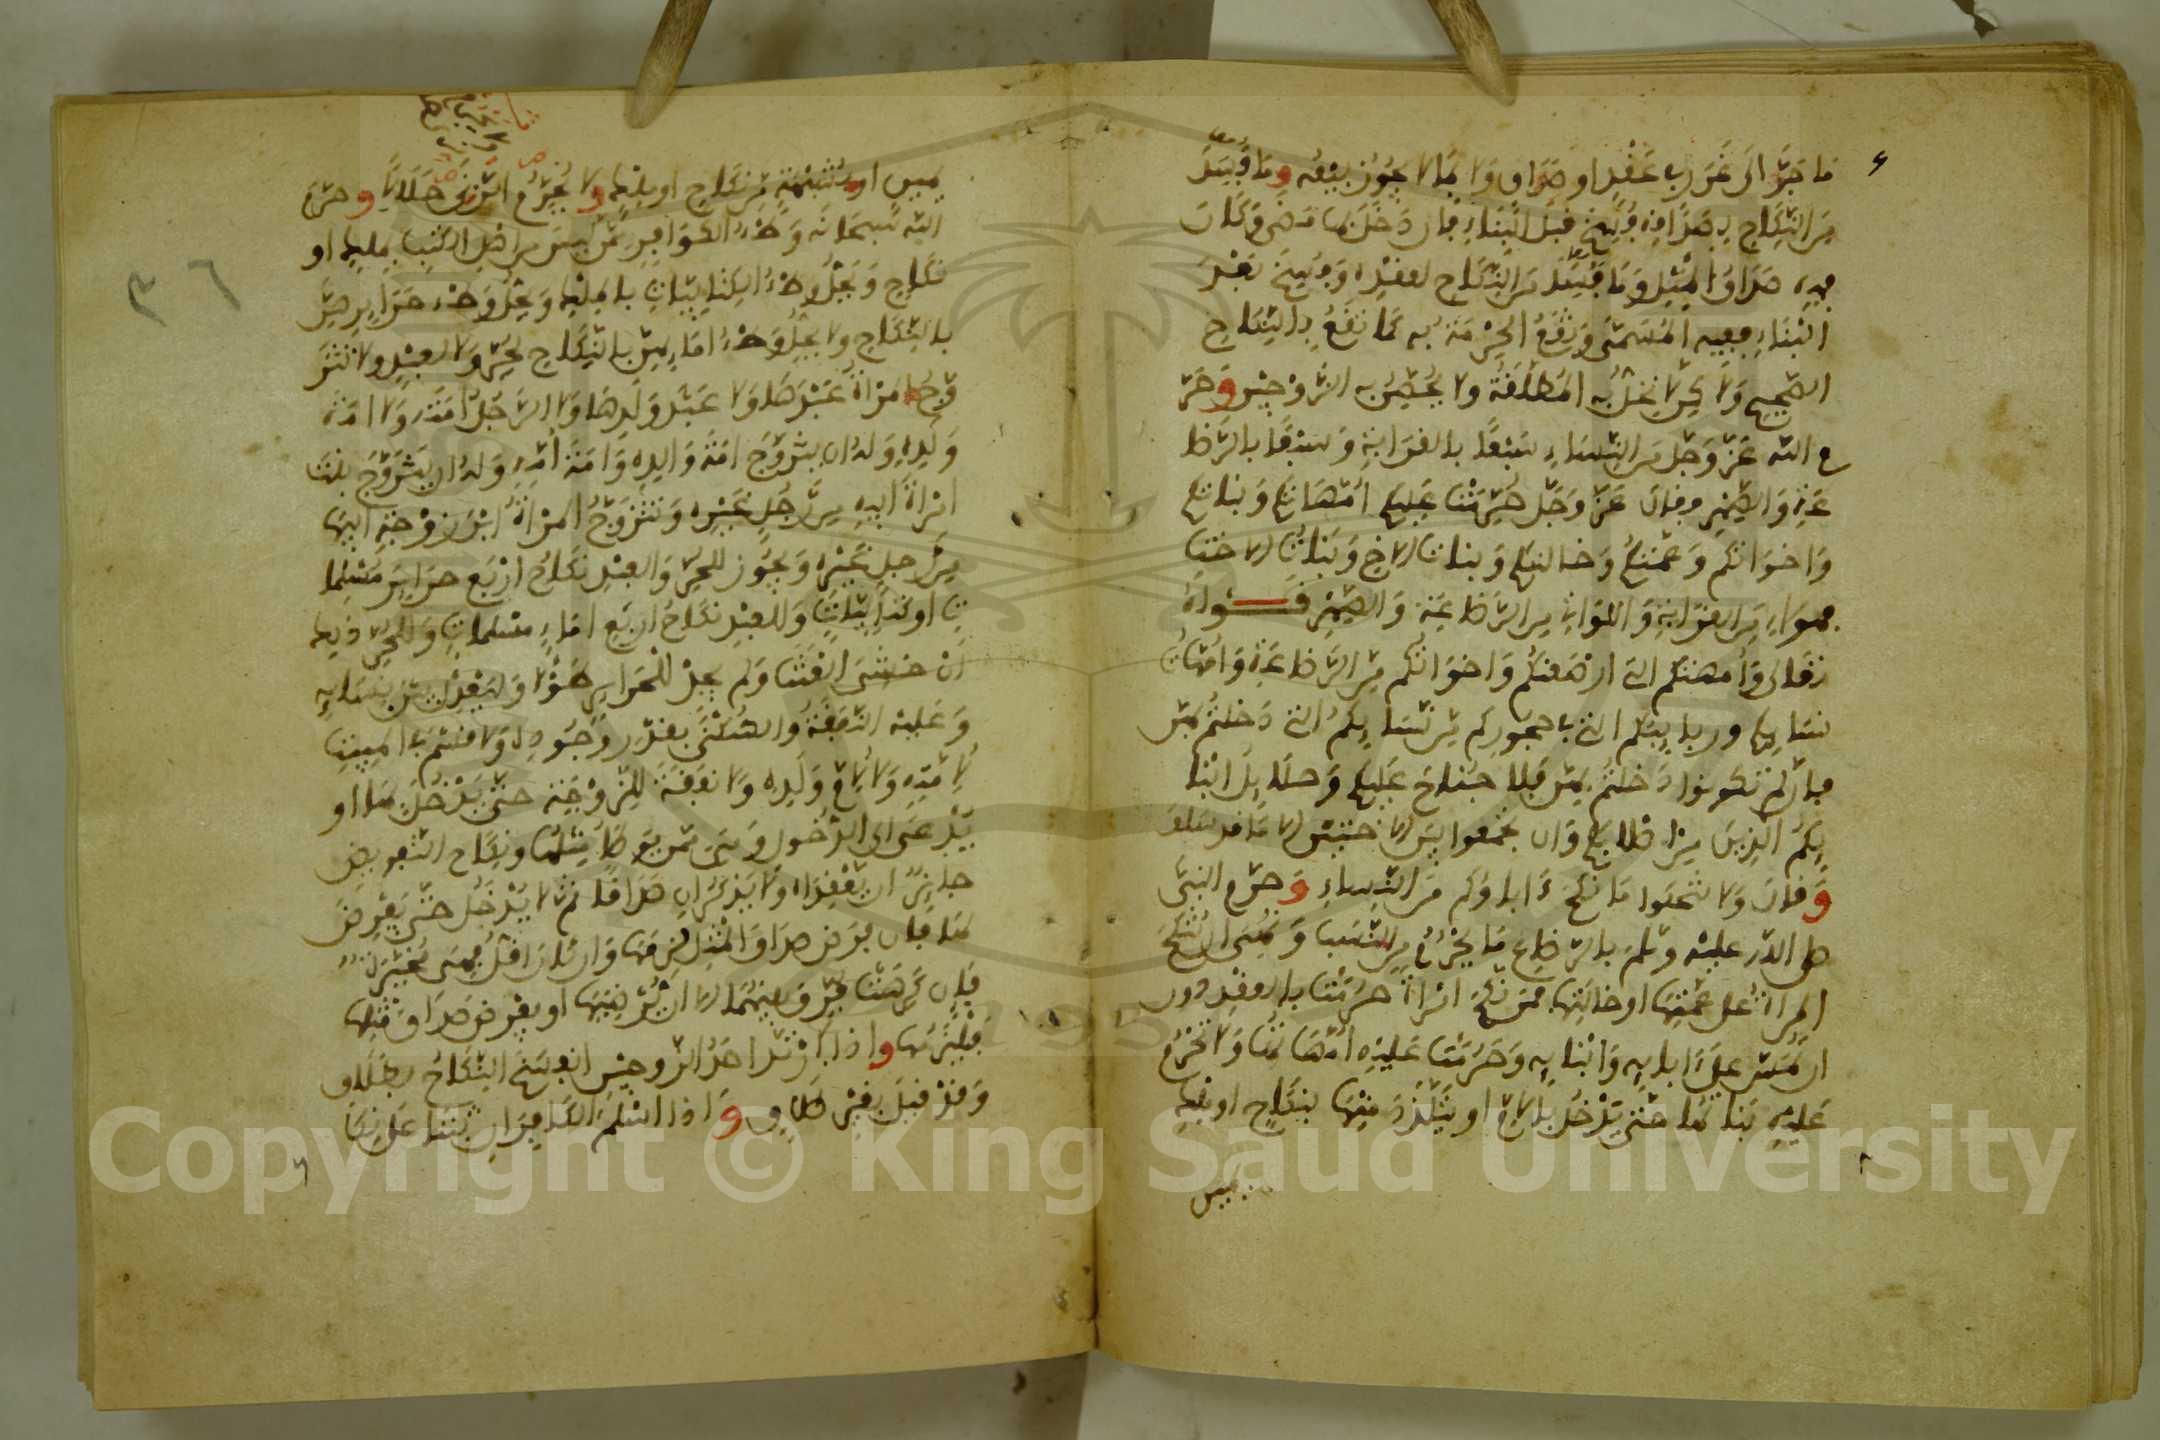 ما جر الى غرر في عقد او صداق ولا بما لا يجوز بيعه وما فسد
من النكاح لصداقه فسخ قبل البناء فان دخل بها مضى وكان
فيه صداق المثل وما فسد من النكاح لعقده وفسخ بعد
البناء ففيه المسمى وتقع الحرمة به كما تقع بالنكاح
الصحيح ولاكن لا تحل به المطلقة ولا يحصن به الزوجين وحر
م الله عز وجل من النساء سبعا بالقرابة وسبعا بالرضا
عة والصهر فقال عز وجل حرمت عليكم امهاتكم وبناتكم
واخواتكم وعمتكم وخالتكم وبنات الاخ وبنات الاخت
فهولاء من القرابة واللواتي من الرضاعة والصهر قـــوله
تعالى وامهتكم التي ارضعنكم واخواتكم من الرضاعة وامهات
نسايكم وربايبكم التي في حجوركم من نسايكم التي دخلتم بهن
فان لم تكونوا دخلتم بهن فلا جناح عليكم وحلايل ابنا
يكم الذين من اصلابكم وان تجمعوا بين الاختين الا ما قد سلف
وقال ولا تنكحوا ما نكح ءاباوكم من النساء وحرم النبي
صلى الله عليه وسلم بالرضاع ما يحرم من النسب ونهى ان تنكح
المراة على عمتها او خالتها فمن نكح امراة حرمت بالعقد دون
ان تمس على ءابايه وابنايه وحرمت عليه امهاتها ولا تحرم
عليه بناتها حتى يدخل بالام او يتلذذ منها بنكاح او ملك
يمين
٣٦
يمين او بشبهة من نكاح او ملك ولا يحرم الزنى حلالا وحرم
الله سبحانه وطء الكوافر ممن ليس من اهل الكتب بملك او
نكاح ويحل وطء الكتابيات بالملك ويحل وطء حرايرهن
بالنكاح ولا يحل وطء امايهن بالنكاح لحر ولا لعبد ولا تتز
وج المراة عبدها ولا عبد ولدها ولا الرجل امته ولا امة
ولده وله ان يتزوج امة والده وامة امه وله ان يتزوج بنت
امراة ابيه من رجل غيره وتتزوج المراة ابن زوجة ابيها
من رجل غيره ويجوز للحر والعبد نكاح اربع حراير مسلما
ت او كتابيات وللعبد نكاح اربع اماء مسلمات وللحر ذلك
ان خشي العنت ولم يجد للحراير طولا وليعدل بين نسايه
وعليه النفقة والسكنى بقدر وجوده ولا قسم في المبيت
لامته ولا لام ولده ولا نفقة للزوجة حتى يدخل بها او
يدعى الى الدخول وهي ممن يوطا مثلها ونكاح التفويض
جايز ان يعقداه ولا يذكران صداقا ثم لا يدخل حتى يفرض
لها فان فرض صداق المثل لزمها وان كان اقل فهي مخيرة
فان كرهت فرق بينهما الا ان يرضيها او يفرض صداق مثلها
فيلزمها واذا ارتد احد الزوجين انفسخ النكاح بطلاق
وقد قيل بغير طلاق واذا اسلم الكافران ثبتا على نكا
Copyright © King Saud University